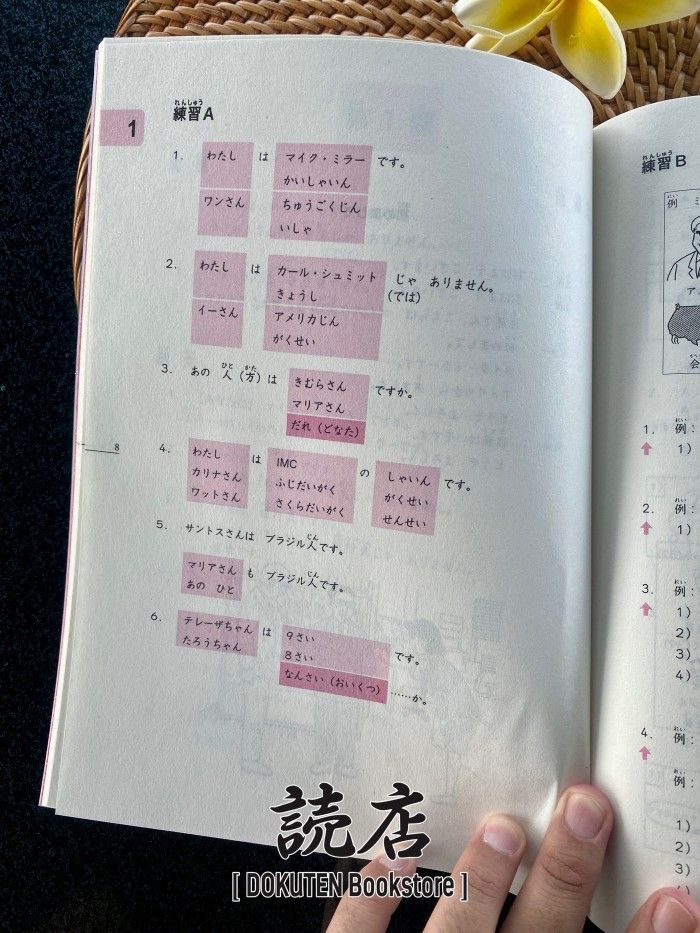 れんしゅう
練習A
1
1. わたし は マイク・ミラー です。
かいしゃいん
ワンさん ちゅうごくじん
いしゃ
2. わたし は カール・シュミット じゃ ありません。
きょうし (では)
イーさん アメリカじん
がくせい
ひと かた
3. あの 人(方)は きむらさん ですか。
マリアさん
だれ(どなた)
8
4. わたし は IMC の しゃいん です。
カリナさん ふじだいがく がくせい
ワットさん さくらだいがく せんせい
じん
5. サントスさんは ブラジル人です。
じん
マリアさん も ブラジル人です。
あの ひと
6. テレーザちゃん は 9さい です。
たろうちゃん 8さい
なんさい(おいくつ) ……か。
れんしゅう
練習B
れい
例
ア
かい
会
れい
1. 例:
1)
れい
2. 例:
1)
れい
3. 例:
1)
2)
3)
4)
れい
4. 例:
れい
例:
1)
2)
3)
読店
[ DOKUTEN Bookstore ]